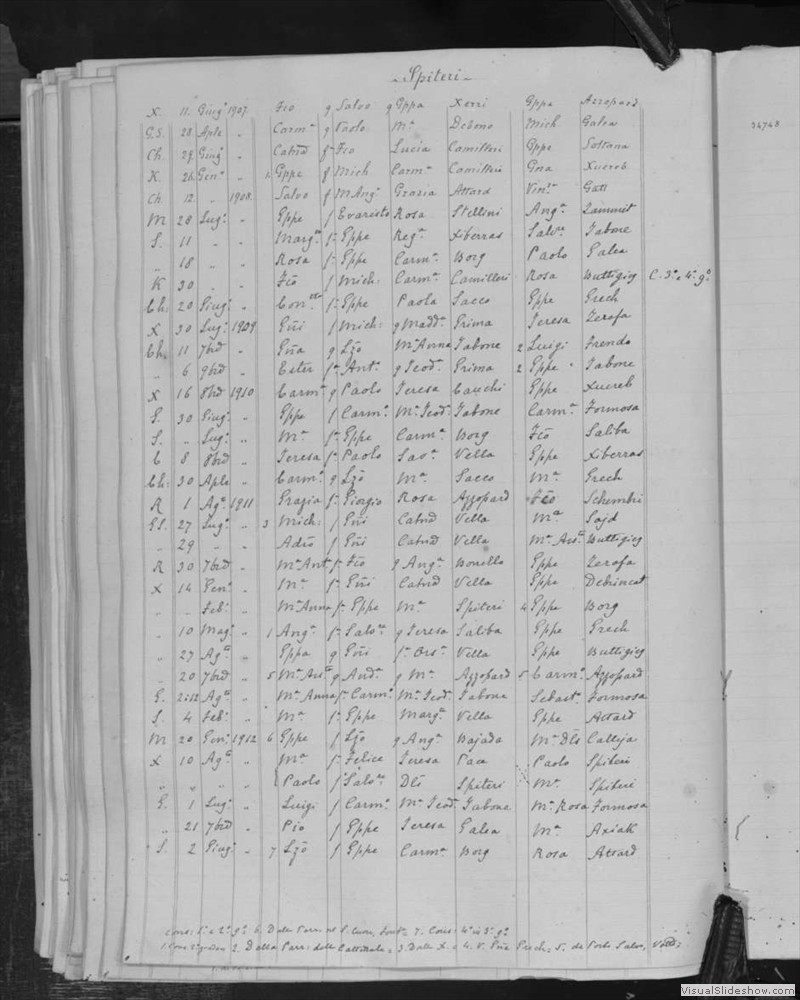 Spiteri
X. 11. Giugº 1907. Fco g Salvo g Gppa Xerri Gppa Azzopard
G.S. 28. Aple " Carmª g Paolo Mª Debono Mich Galea
Ch. 29. Giugº " Catnd fª Fco Lucia Camilleri Gppe Sultana
K. 26. Genº " 1. Gppe g Mich Carmª Camilleri Gna Xuereb
Ch 12. " 1908. Salvo g M.Angº Grazia Attard Vinº Gatt
M 28 Lugº " Gppe f Evaristo Rosa Stellini Angª Zammit
S. 11 " " Margta fª Gppe Regª Xiberras Salvre Tabone
" 18 " " Rosa fª Gppe Carmª Borg Paolo Galea
K 30 " " Fco f Mich: Carmª Camilleri Rosa Buttigieg C. 3º e 4º gº
Ch. 20 Giugº " Contta fª Gppe Paola Sacco Gppe Grech
X 30 Lugº 1909 Gñi f Mich: g Maddª Grima Teresa Zerafa
Ch. 11 7bre " Gña g Lzo Mª Anna Tabone 2 Luigi Frendo
" 6 9bre " Ester fª Antº g Teodª Grima 2 Gppe Tabone
X 16 8bre 1910 Carmª g Paolo Teresa Cauchi Gppe Xuereb
G. 30 Giugº " Gppe f Carmº Mª Teodª Tabone Carmª Formosa
S. " Lugº " Mª fª Gppe Carmª Borg Fco Saliba
C 8 8bre " Teresa fª Paolo Savª Vella Gppe Xiberras
Ch: 30 Aple " Carmª g Lzo Mª Sacco Mª Grech
R 1 Agº 1911 Grazia fª Giorgio Rosa Azzopard Fco Schembri
GS. 27 Lugº " 3 Mich: f Gñi Catnd Vella Mª Sajd
" 29 " " f Gñi Catnd Vella Mª Buttigieg
R 30 7bre " Mª Antª fª Fco g Angª Borello Gppe Zerafa
X 14 Genº " Mª fª Gñi Catnd Vella Gppe Debrincat
" " Febº " Mª Anna fª Gppe Mª Spiteri 4 Gppe Borg
" 10 Magº " 1 Angª fª Salvre g Teresa Saliba Gppe Grech
" 27 Agº " Gppa g Gñi fª Orsª Vella Gppe Buttigieg
" 20 7bre " 5 Mª g Andª g Mª Azzopard 5 Carmº Azzopard
G. Agº " Mª Anna fª Carmº Mª Teodª Tabone Sebastº Formosa
S. 4 Febº " Mª fª Gppe Margª Vella Gppe Attard
M 20 Genº 1912 6 Gppe f Lzo g Angª Bajada Mª Dls Calleja
X 10 Agº " Mª fª Felice Teresa Pace Paolo Spiteri
" " " " Paolo f Salvre Dls Spiteri Mª Spiteri
G. 1 Lugº " Luigi f Carmº Mª Teodª Tabone Mª Rosa Formosa
" 21 7bre " Pio f Gppe Teresa Galea Mª Axiak
S. 2 Giugº " 7 Lzo f Gppe Carmª Borg Rosa Attard
Cons: 1º e 2º gº 6. Dalla Parr: 7. Cons: 4º gº
2. Dalla Parr: della Cattedrale = 3 Dalla X. = 4. V. = 5. de Porto Salvo,
34748
VisualSlideshow.com